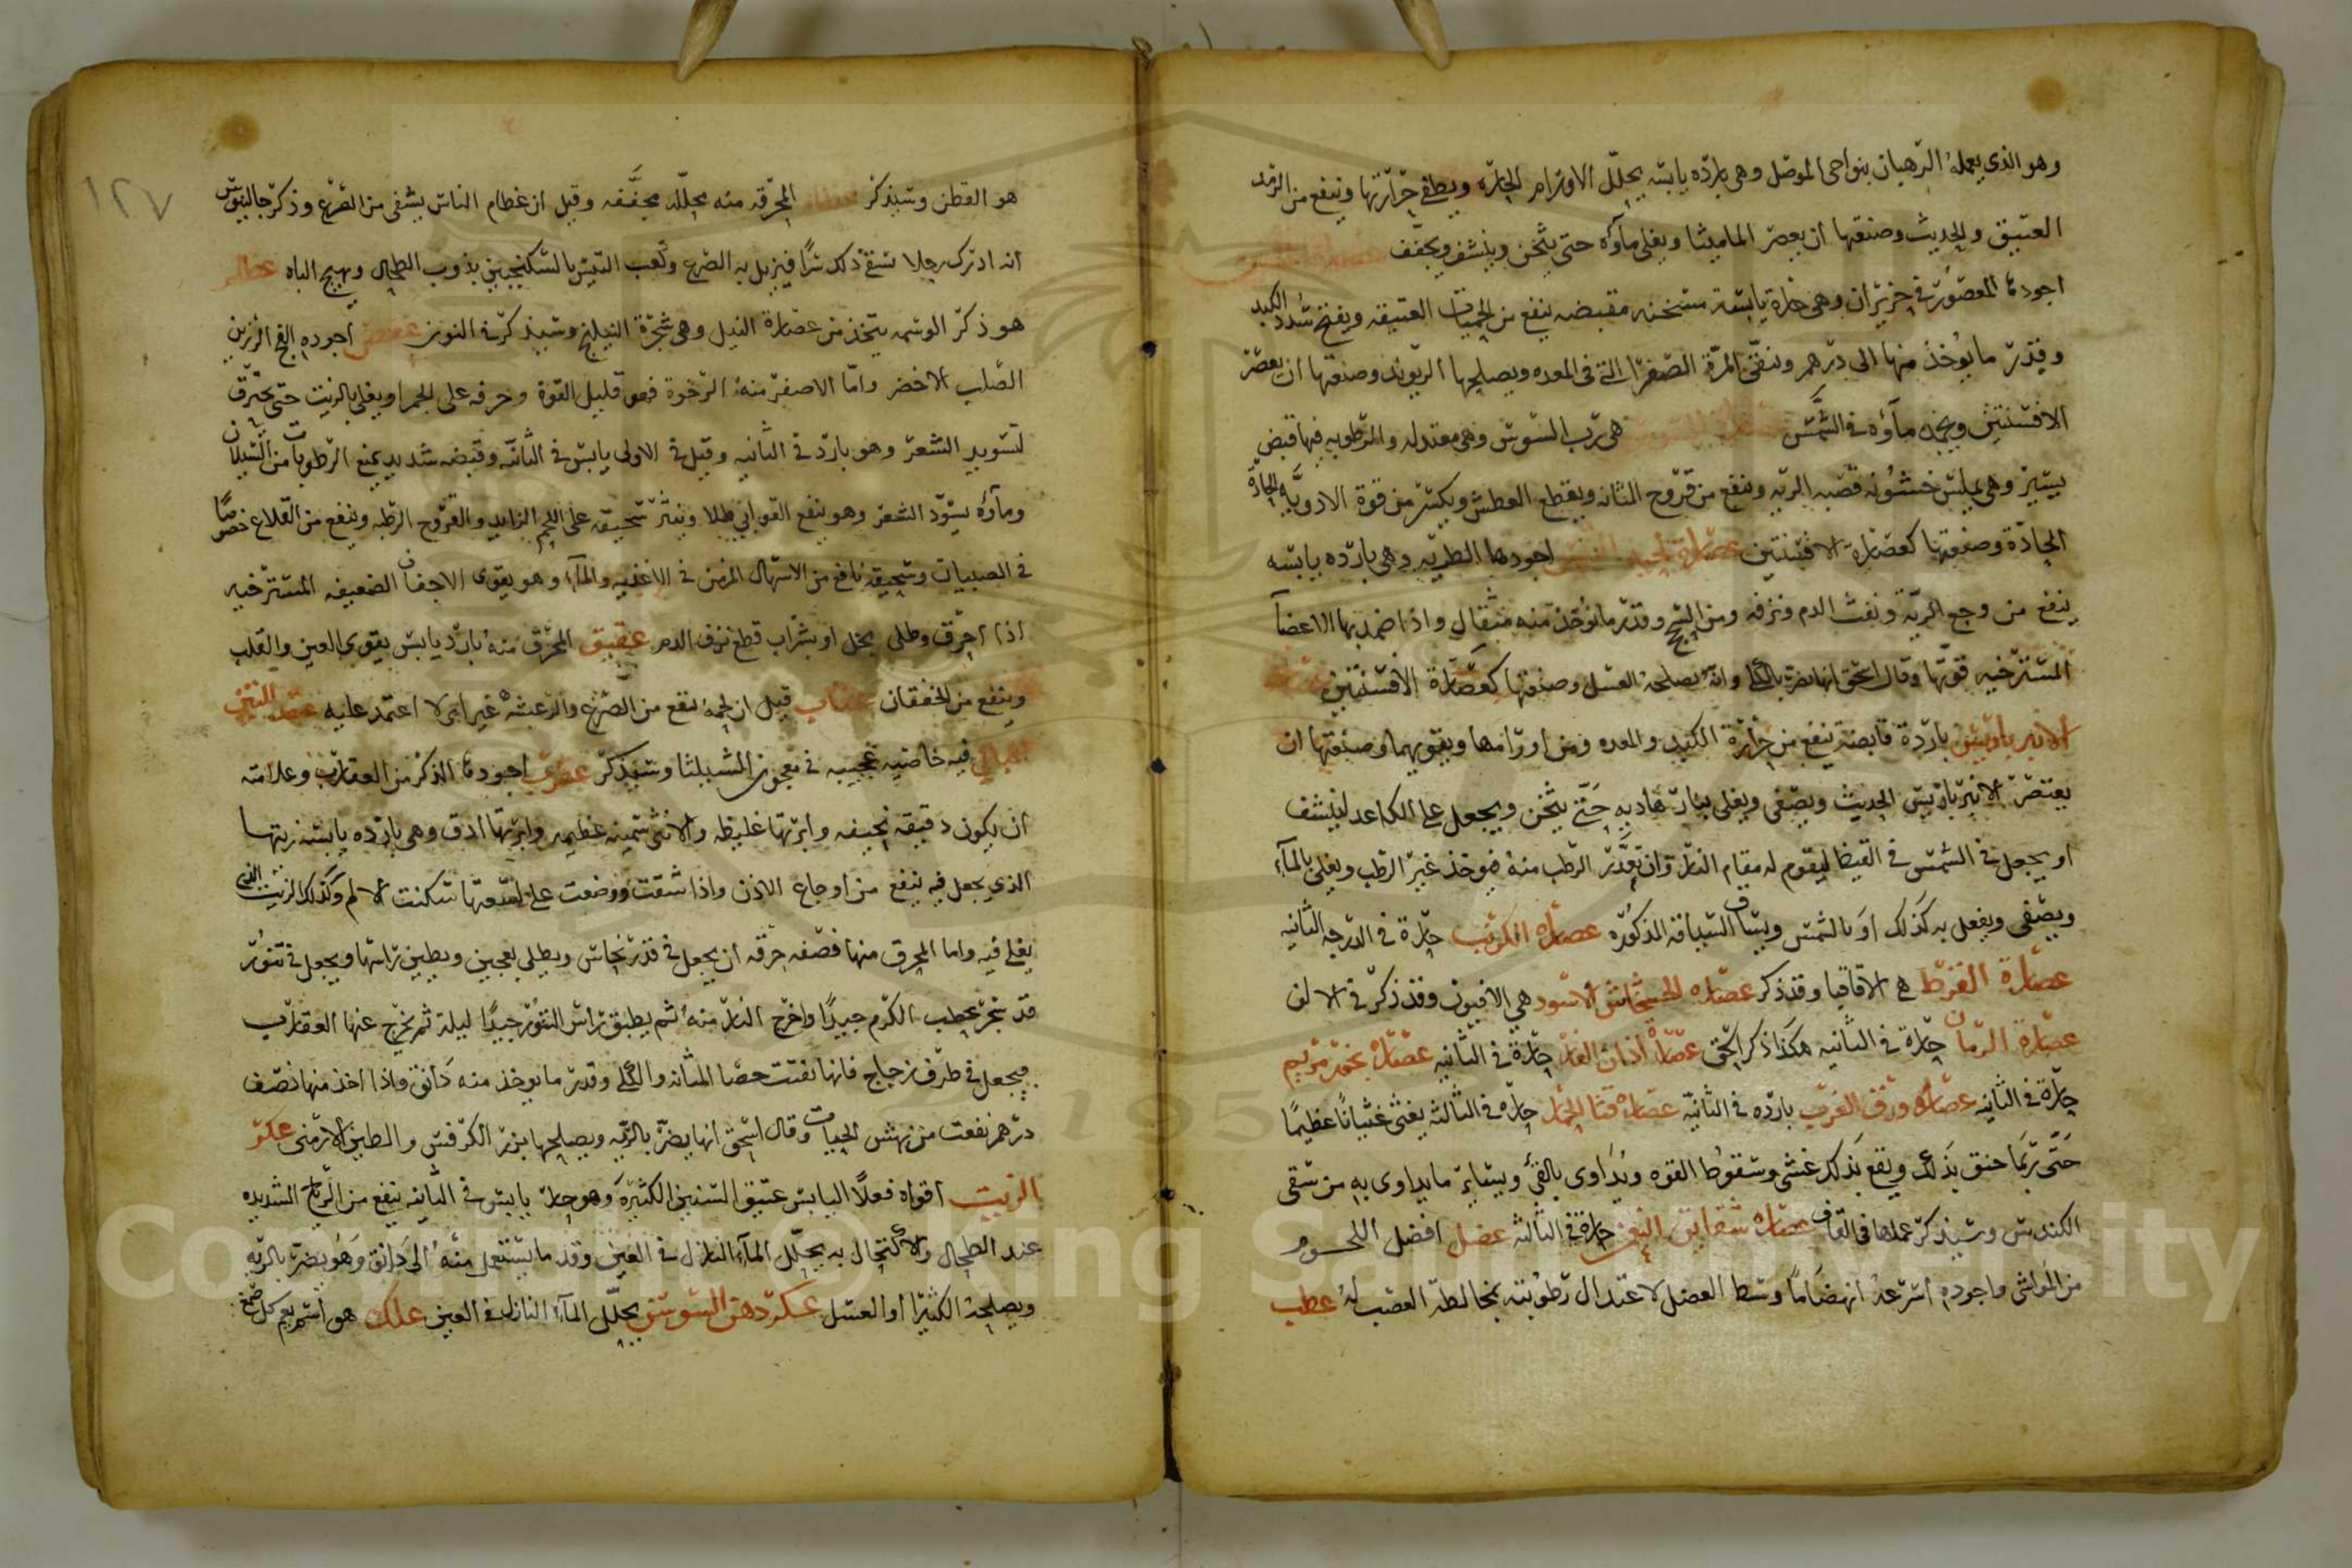 وهو الذى يعمله الرهبان بنواحى الموصل وهى بارده يابسه يحلل الاورام الحاره ويطفى حرارتها وينفع من الرمد
العتيق والحديث وصنعتها ان يعصر الماميثا ويغلى ماؤه حتى يثخن وينشف ويجفف
اجودها المعصور فى حزيران وهى حارة يابسة مسخنه مقبضه ينفع من الحميات العتيقه ويفتح سدد الكبد
وقدر ما يؤخذ منها الى درهم وتنقى المرة الصفرا التى فى المعده ويصلحها الريوند وصنعتها ان يعصر
الافسنتين ويجمد ماؤه فى الشمس هى رب السوس وهى معتدله والرطوبه فيها قبض
يسير وهى يملس خشونه قصبه الريه وينفع من قروح المثانه ويقطع العطش ويكسر من قوة الادويه الحادة
الحادة وصنعتها كعصارة الافسنتين عصارة لحيه التيس اجودها الطريه وهى بارده يابسه
ينفع من وجع الريه ونفث الدم ونزفه ومن السحج وقدر ما يؤخذ منه مثقال واذا ضمد بها الاعضآ
المسترخيه قوتها وقال اسحق انها تضر بالكلى وانه يصلحه العسل وصنعتها كعصارة الافسنتين عصارة
الانبرباريس باردة قابضة ينفع من حرارة الكبد والمعده ومن اورامها ويقويهما وصنعتها ان
يعتصر الانبرباريس الحديث ويصفى ويغلى بنار هاديه حتى يثخن ويجعل على الكاعد لينشف
او يجعل فى الشمس فى القيظ ليقوم له مقام النار وان تعذر الرطب منه فيوخذ غير الرطب ويغلى بالمآء
ويصفى ويفعل به كذلك او بالشمس ويساق السياقة المذكوره عصاره الكرنب حارة فى الدرجه الثانيه
عصارة القرظ هى الاقاقيا وقد ذكر عصاره الخشخاش الاسود هى الافيون وقد ذكر فى الالف
عصارة الرمان حارة فى الثانيه هكذا ذكر اسحق عصارة اذان الفار حارة فى الثانيه عصارة بخور مريم
حارة فى الثانيه عصاره ورق الغرب بارده فى الثانيه عصاره قثا الجمل حاره فى الثالثه يغثى غثيانا عظيما
حتى ربما خنق بذلك ويقع بذلك غشى وسقوط القوه ويداوى بالقئ وبسائر ما يداوى به من سقى
الكندس وسيذكر عملها فى القاف عصاره شقايق النعمن حارة فى الثالثه عضل افضل اللحوم
من المواشى واجوده اسرعه انهضاما وسط العضل لاعتدال رطوبته بمخالطه العصب له عطب
١٢٧
هو القطن وسيذكر عظام المحرقه منه محلله مجففه وقيل ان عظام الناس يشفى من الصرع وذكر جالينوس
انه ادرك رجلا سقى ذلك سرا فيزيل به الصرع وكعب التيس بالسكنجبين يذوب الطحال ويهيج الباه عظلم
هو ذكر الوسمه يتخذ من عصارة النيل وهى شجرة النيلنج وسيذكر فى النون عفص اجوده الفج الرزين
الصلب الاخضر واما الاصفر منه الرخوة فهو قليل القوة وحرقه على الجمر او يغلى بالزيت حتى يحترق
لتسويد الشعر وهو بارد فى الثانيه وقيل فى الاولى يابس فى الثانيه وقبضه شديد يمنع الرطوبات من السيلان
وماؤه يسود الشعر وهو ينفع القوابى طلا وينثر سحيقه على اللحم الزايد والقروح الرطبه وينفع من القلاع خصوصا
فى الصبيان وسحيقه نافع من الاسهال المزمن فى الاغذيه والمآء وهو يقوى الاجفان الضعيفه المسترخيه
اذا احرق وطلى بخل او بشراب قطع نزف الدم عقيق المحرق منه بارد يابس يقوى العين والقلب
وينفع من الخفقان عقاب قيل ان لحمه ينفع من الصرع والرعشه غير انى لا اعتمد عليه عقد التين
الجبالى فيه خاصيه عجيبه فى معجون الشيلثا وسيذكر عقرب اجودها الذكر من العقارب وعلامته
ان يكون دقيقه نحيفه وابرتها غليظه والانثى سمينه عظيمه وابرتها ادق وهى بارده يابسه زيتها
الذى يجعل فيه ينفع من اوجاع الاذن واذا شقت ووضعت على لسعتها سكنت الالم وكذلك الزيت الذى
يغلى فيه واما المحرق منها فصفه حرقه ان يجعل فى قدر نحاس ويطلى بعجين ويطين راسها ويجعل فى تنور
قد سجر بحطب الكرم جيدا واخرج النار منه ثم يطبق راس التنور جيدا ليلة ثم يخرج عنها العقارب
فيجعل فى ظرف زجاج فانها تفتت حصا المثانه والكلى وقدر ما يوخذ منه دانق واذا اخذ منها نصف
درهم نفعت من نهش الحيات وقال اسحق انها يضر بالريه ويصلحها بزر الكرفس والطين الارمنى عكر
الزيت اقواه فعلا اليابس عتيق السنين الكثيره وهو حار يابس فى الثانيه ينفع من الرياح الشديده
عند الطحال والاكتحال به يحلل المآء النازل فى العين وقدر ما يستعمل منه الى دانق وهو يضر بالريه
ويصلحه الكثيرا او العسل عكر دهن السوسن يحلل المآء النازل فى العين علك هو اسم يعم كل صمغ
Copyright © King Saud University
1957